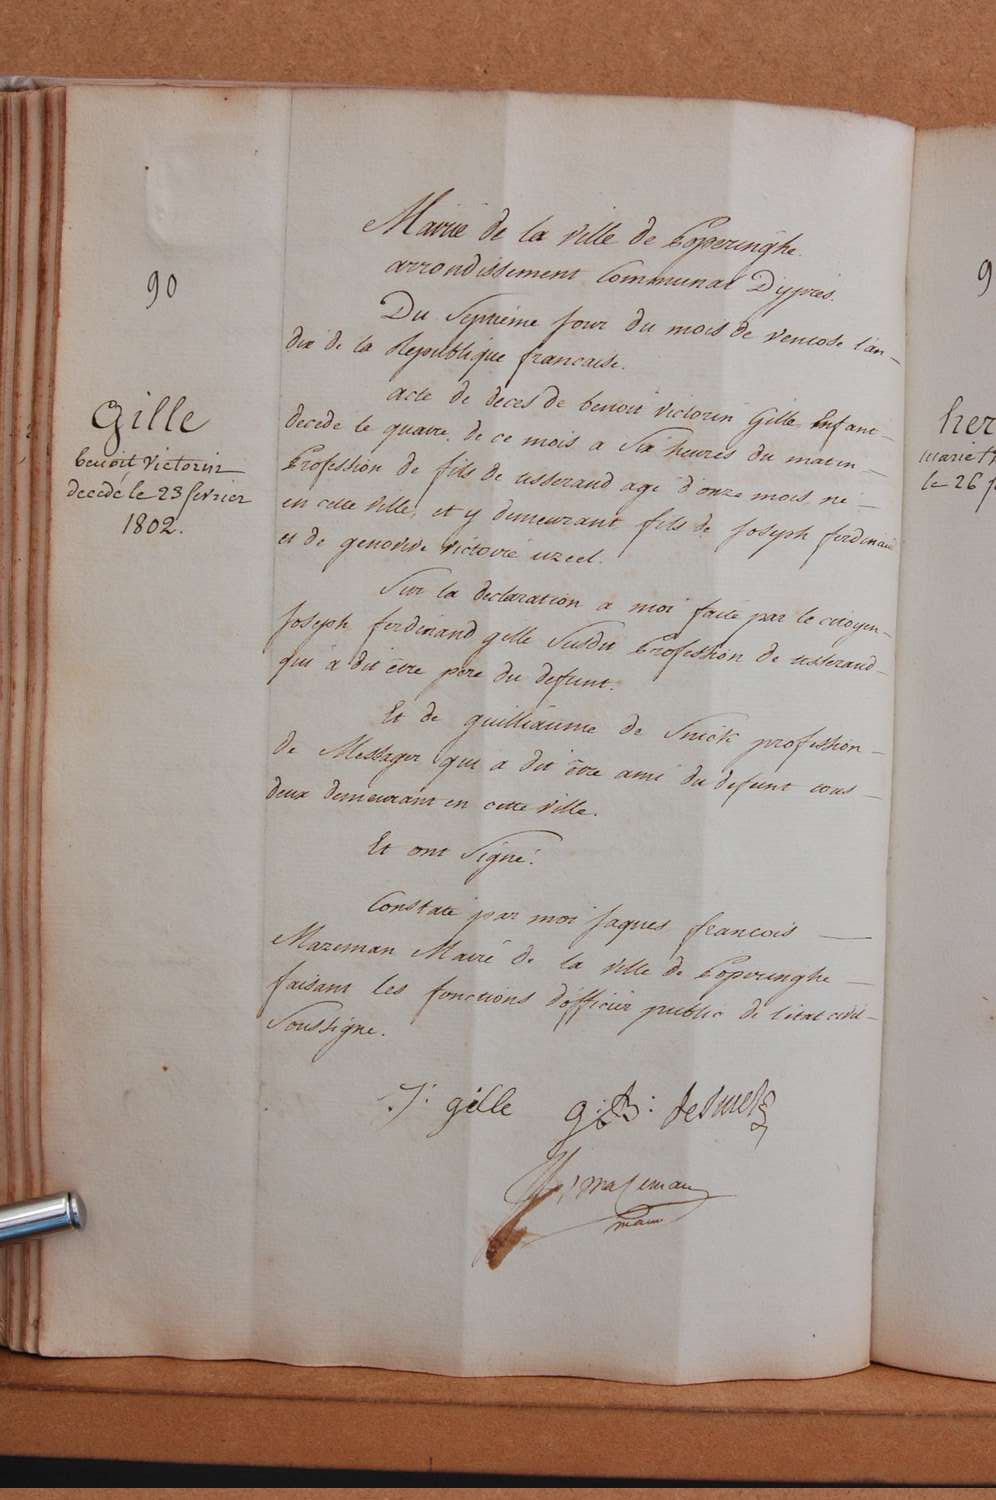 90
Gille
benoit victorin
decedé le 23 fevrier
1802.
Mairie de la ville de Poperinghe
arrondissement Communal D'ypres.
Du Septieme jour du mois de ventose l'an
dix de la Republique francaise.
acte de deces de benoit victorin Gille Enfant
decede le quatre de ce mois a Six heures du matin
Profession de fils de tisserand agé d'onze mois né
en cette ville, et y demeurant fils de Joseph ferdinand
et de genovive victoire uzeel.
Sur la declaration a moi faite par le citoyen
Joseph ferdinand gille Susdit Profession de tisserand
qui a dit être pere du defunt.
Et de guilliaume de Snick profession
de Messager qui a dit être ami du defunt tous
deux demeurant en cette ville.
Et ont Signé.
Constaté par moi Jaques francois
Mazeman Maire de la ville de Poperinghe
faisant les fonctions d'officier public de l'etat civil
Soussigne.
J: gille
g: B:
Mazeman
maire
9
her
marie
le 26 f